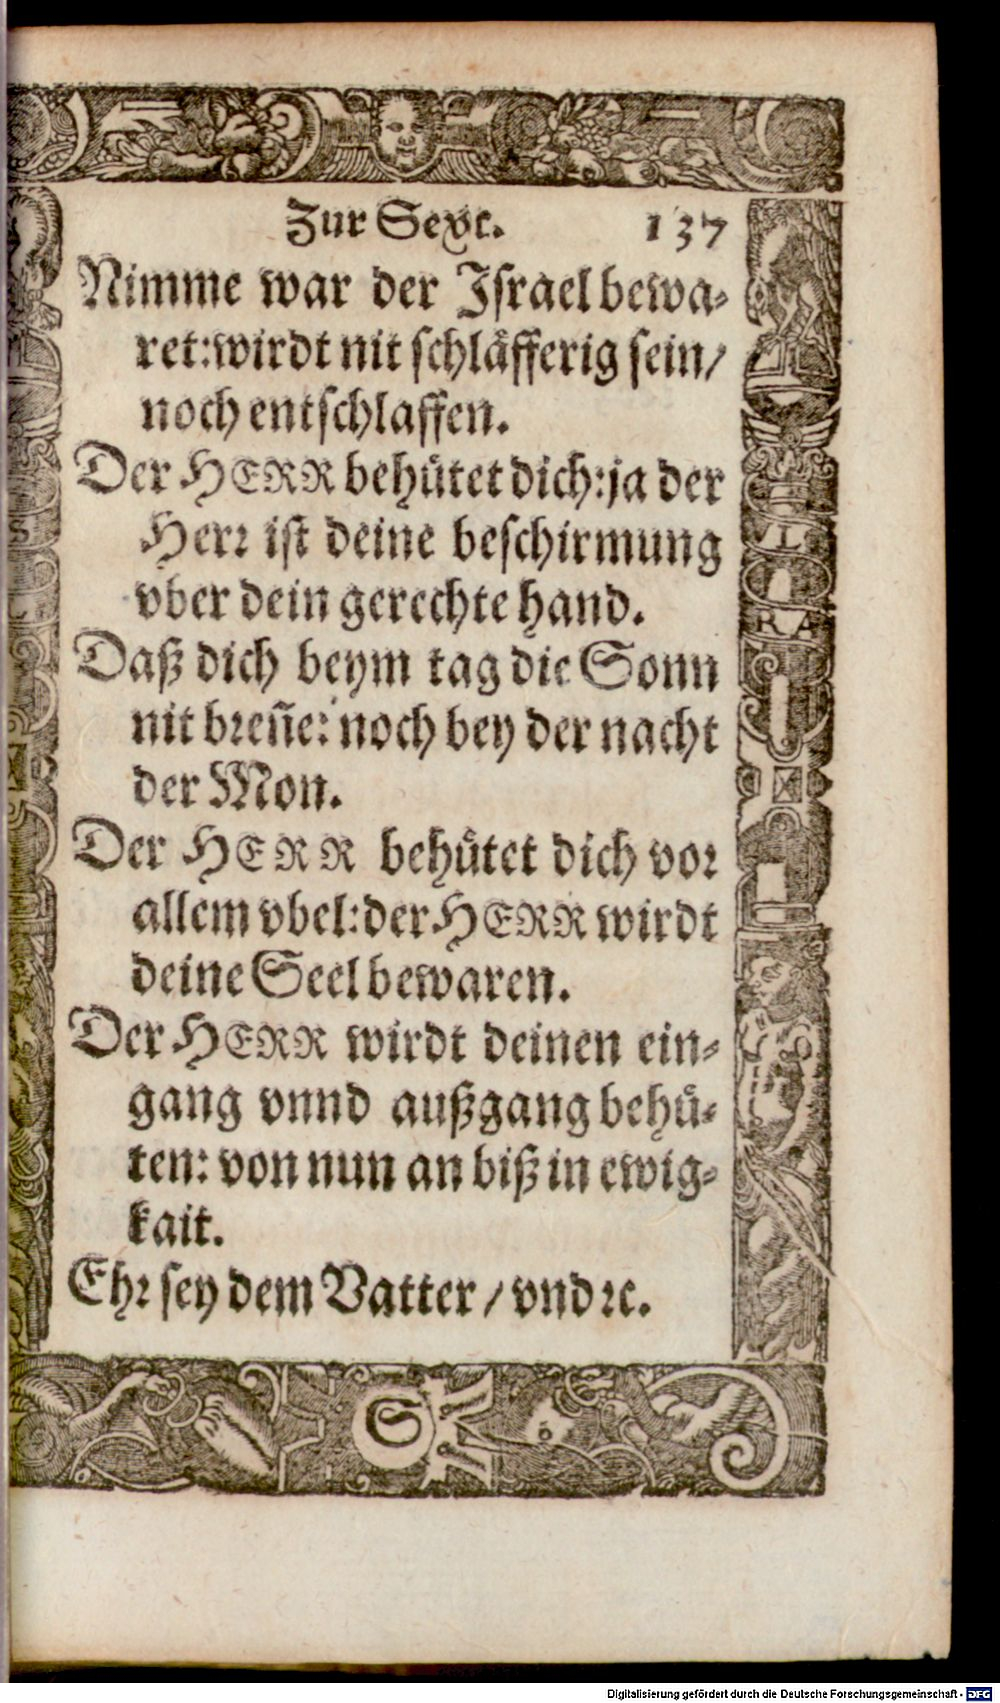 Zur Sext. 137
Nimme war der Israel bewa⸗
ret: wirdt nit schlåfferig sein/
noch entschlaffen.
Der HERR behůtet dich: ja der
Herr ist deine beschirmung
vber dein gerechte hand.
Daß dich beym tag die Sonn
nit breñe: noch bey der nacht
der Mon.
Der HERR behůtet dich vor
allem vbel: der HERR wirdt
deine Seel bewaren.
Der HERR wirdt deinen ein⸗
gang vnnd außgang behů⸗
ten: von nun an biß in ewig⸗
kait.
Ehr sey dem Vatter / vnd ꝛc.
S
L
T
RA
S
Digitalisierung gefördert durch die Deutsche Forschungsgemeinschaft - DFG